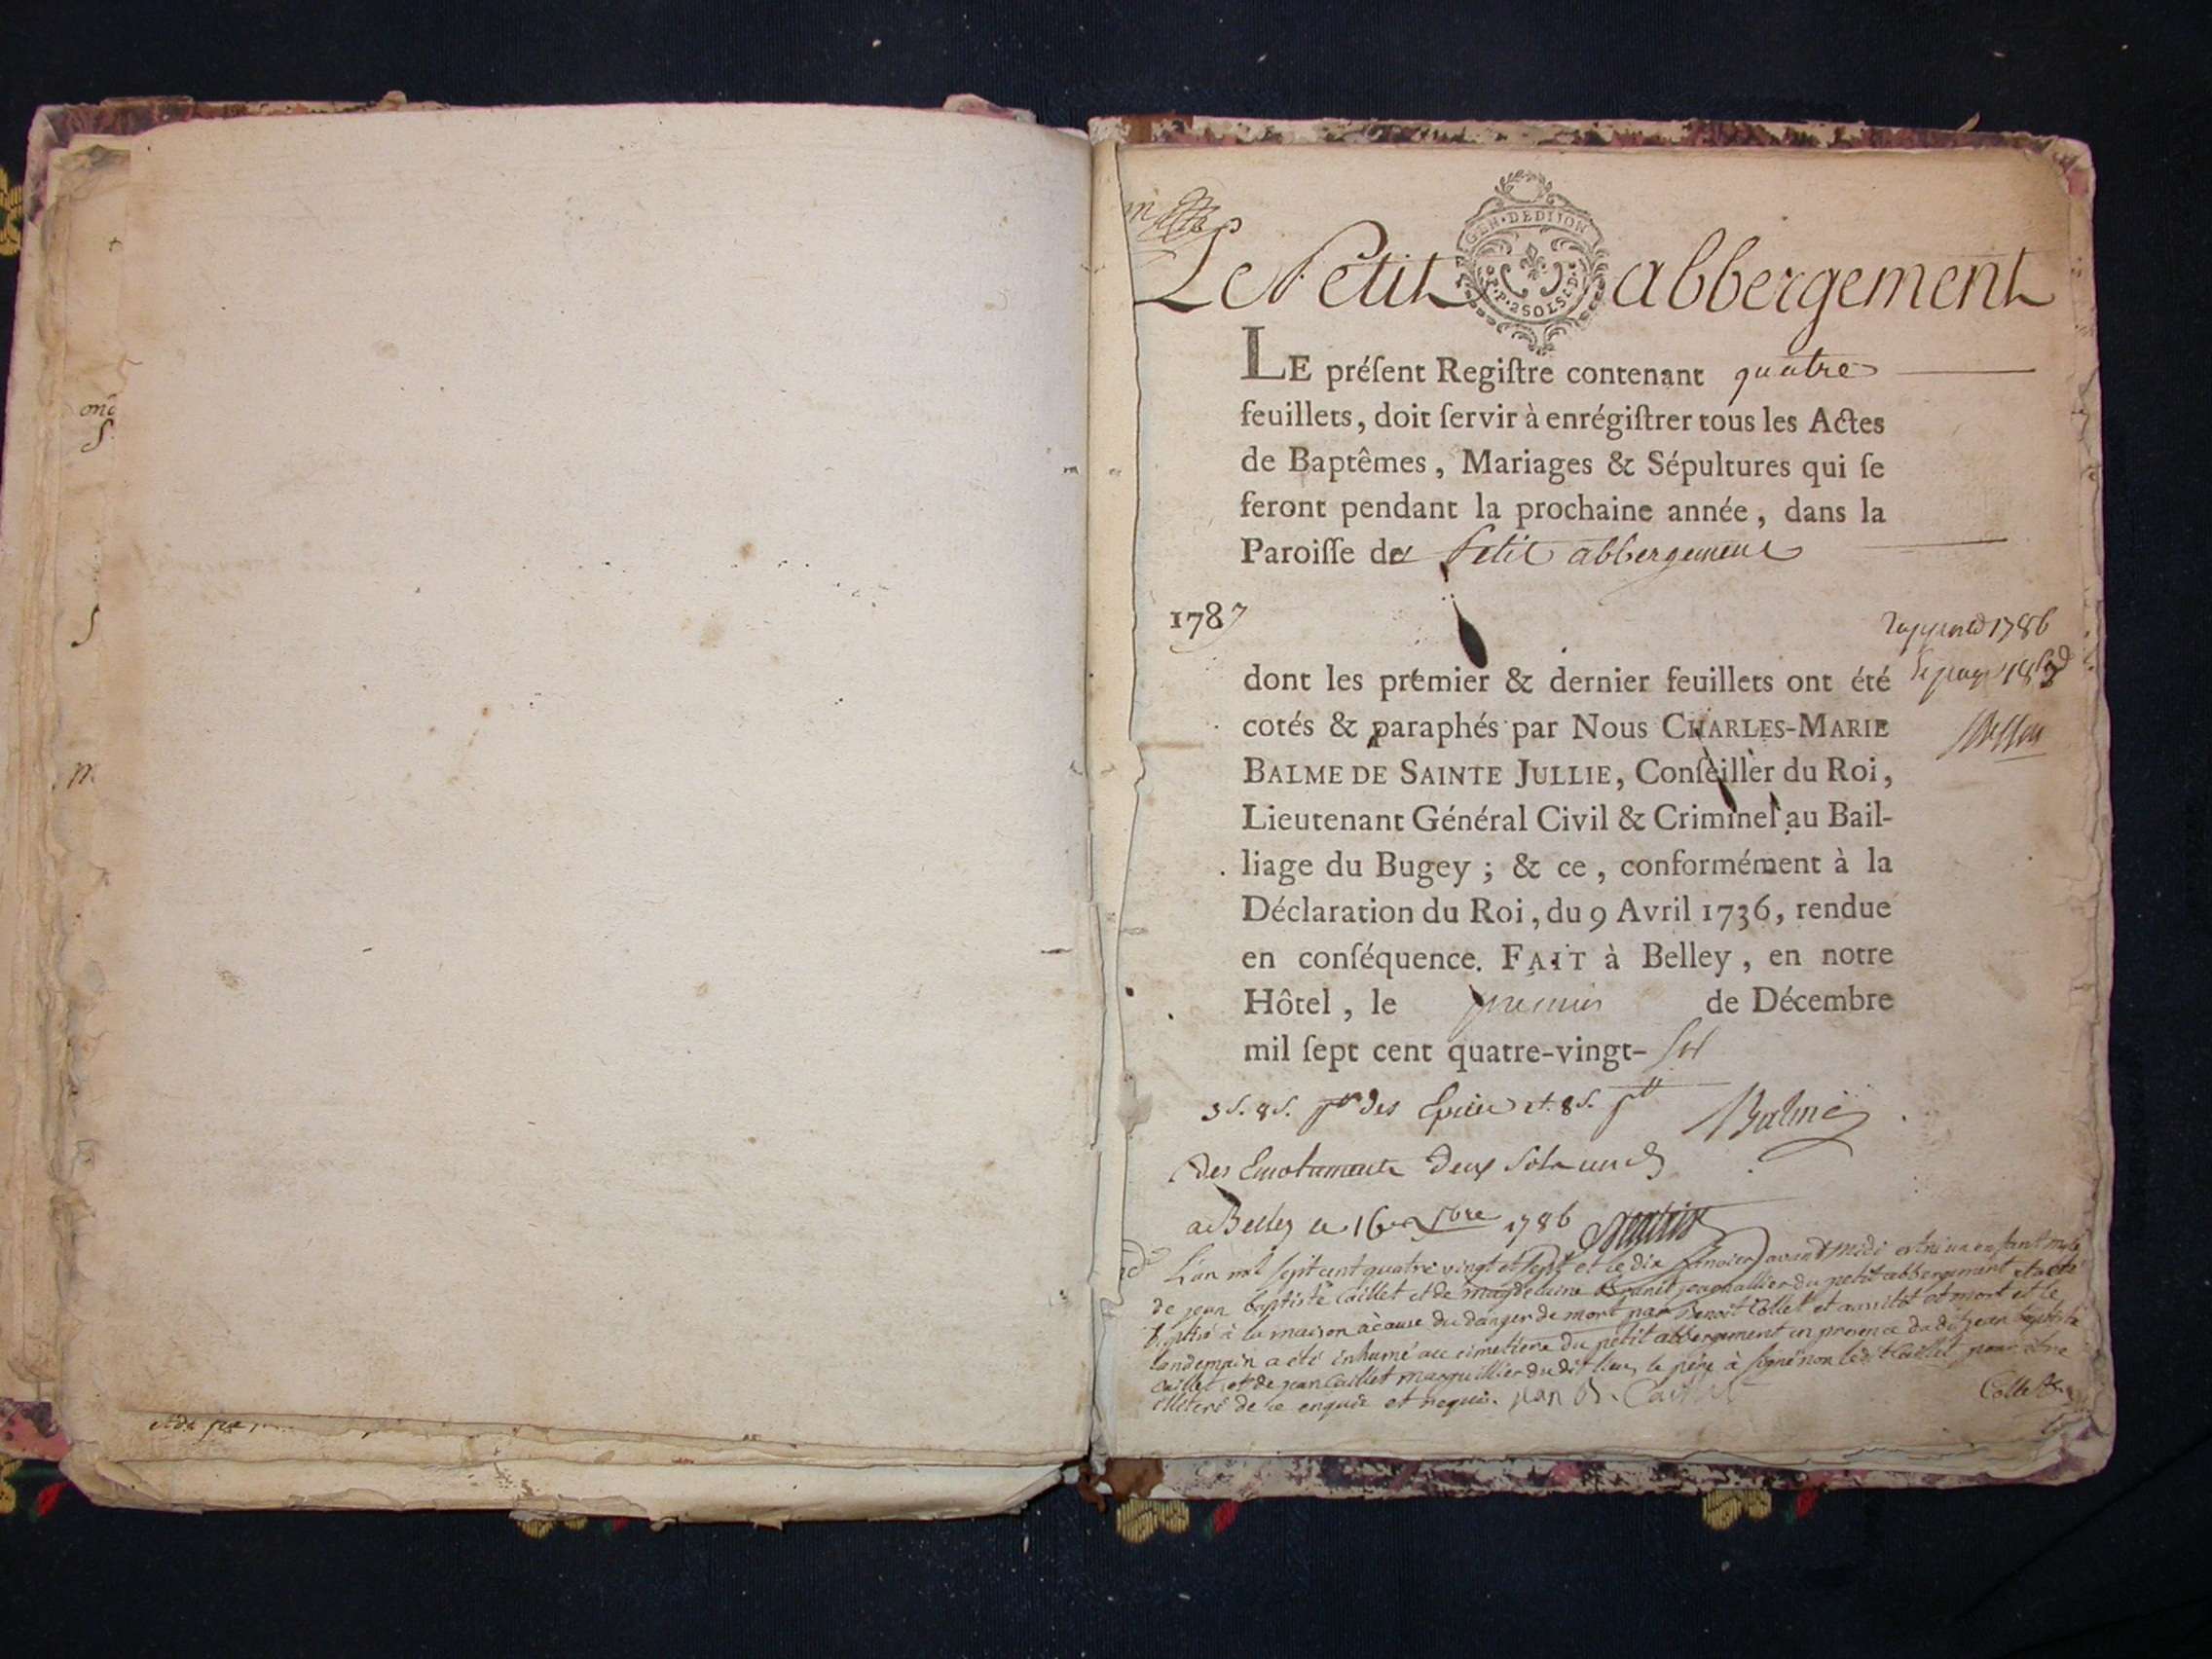 Le Petit abbergement
GEN·DEDIJON
LE préſent Regiſtre contenant quatre
feuillets, doit ſervir à enrégiſtrer tous les Actes
de Baptêmes, Mariages & Sépultures qui ſe
feront pendant la prochaine année, dans la
Paroiſſe de Petit abbergement
1787
1786
dont les premier & dernier feuillets ont été
cotés & paraphés par Nous CHARLES-MARIE
BALME DE SAINTE JULLIE, Conſeiller du Roi,
Lieutenant Général Civil & Criminel au Bail-
liage du Bugey ; & ce, conformément à la
Déclaration du Roi, du 9 Avril 1736, rendue
en conſéquence. FAIT à Belley, en notre
Hôtel, le premier de Décembre
mil ſept cent quatre-vingt-
3 s. 8 s. des et 8 s.
Balme
Des Emoluments Deux sols un d
a Belley le 16 1786
L'an mil sept cent quatre vingt et sept et le dix janvier avant midi est né un enfant mâle
de jean baptiste Caillet et de magdelaine du petit abbergement et a été
baptisé à la maison à cause du danger de mort par Benoit Collet et aussitôt est mort et le
landemain a été inhumé au cimetiere du petit abbergement en presence dudit jean baptiste
Caillet et de jean Caillet marguillier dudit lieu, le père à signé non ledit Caillet pour être
illiteré de ce enquis et requis. jean B. Caillet
Collet